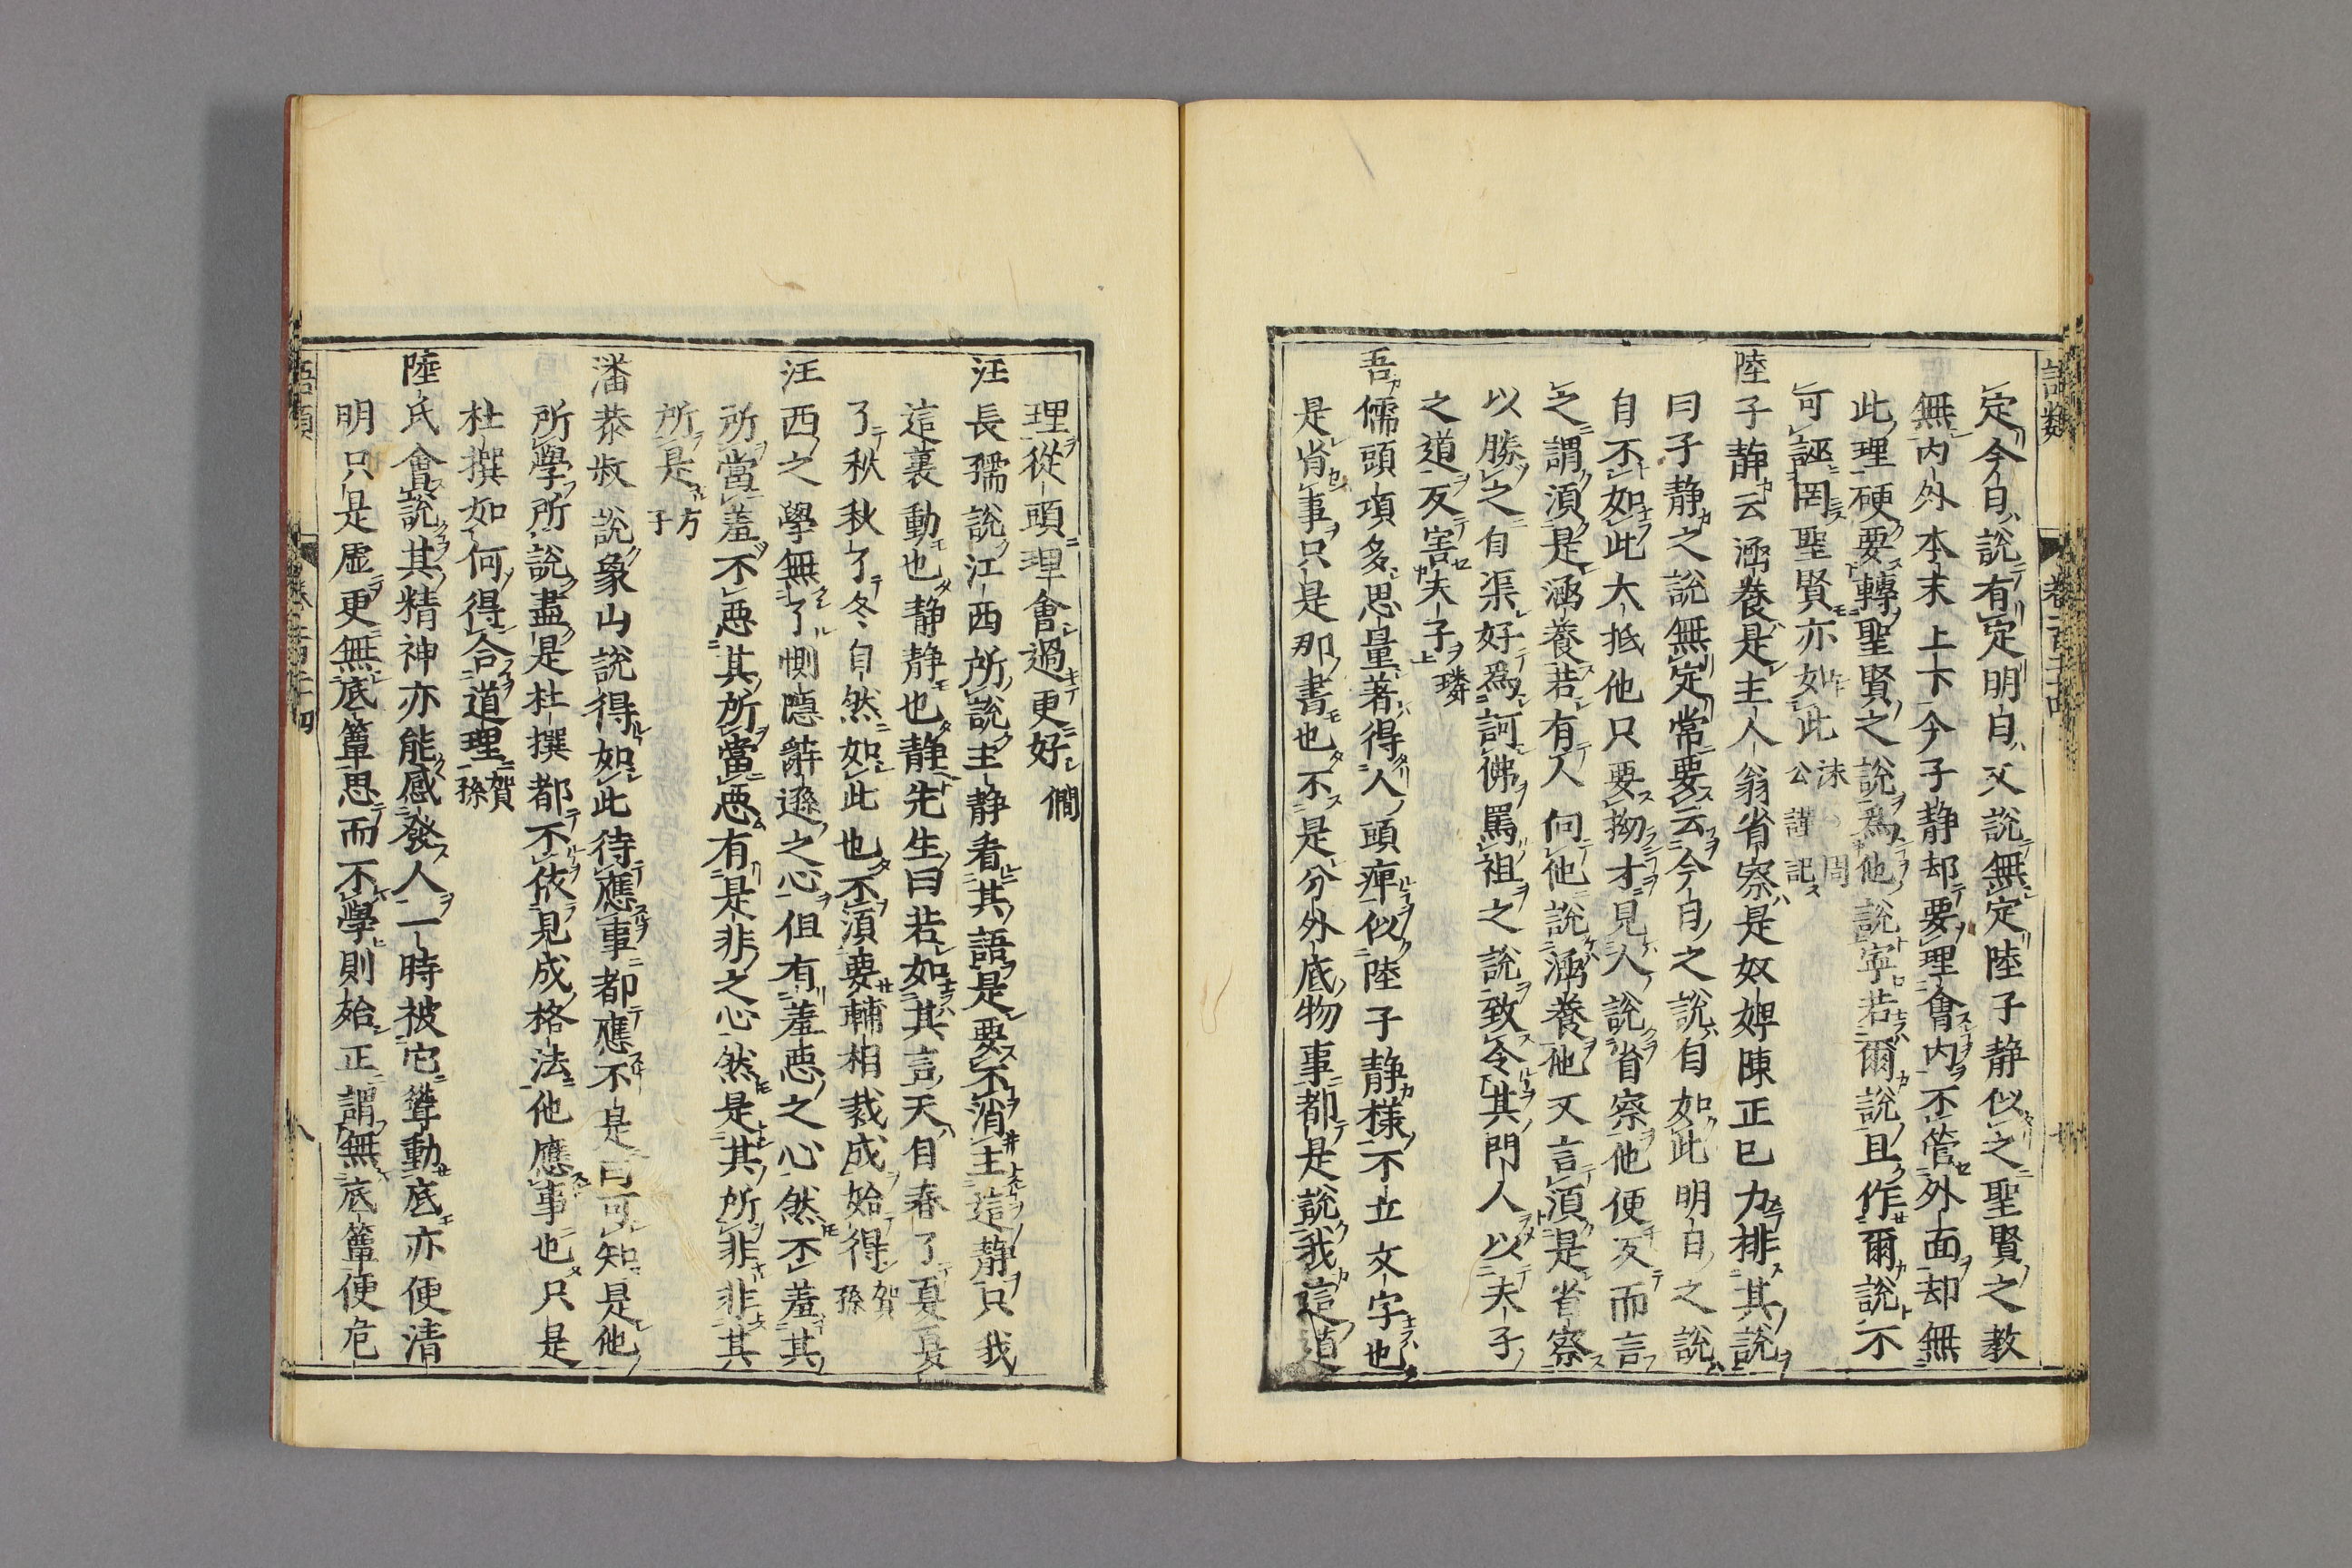 語類　卷百二十四
定今日說有定明日又說無定陸子静似之聖賢之教
無内外本末上下今子静却要理會内不管外面却無
此理硬要轉聖賢之說爲他說寧若爾說且作爾說不
可誣罔聖賢亦如此 洙 公謹記 周
陸子静云涵養是主人翁省察是奴婢陳正已力排其說
曰子静之說無定常要云今日之說自如此明日之說
自不如此大抵他只要拗才見人說省察他便反而言
之謂須是涵養若有人向他說涵養他又言須是省察
以勝之自渠好爲訶佛罵祖之說致令其門人以夫子
之道反害夫子 璘
吾儒頭項多思量著得人頭痺似陸子静様不立文字也
是省事只是那書也不是分外底物事都是說我這道
理從頭理會過更好 僩
汪長孺說江西所說主静看其語是要不消主這静只我
這裏動也静静也静先生曰若如其言天自春了夏夏
了秋秋了冬自然如此也不須要輔相裁成始得 賀孫
江西之學無了惻隱辭遜之心但有羞惡之心然不羞其
所當羞不惡其所當惡有是非之心然是其所非非其
所是 方子
潘恭叔說象山說得如此待應事都應不是曰可知是他
所學所說盡是杜撰都不依見成格法他應事也只是
杜撰如何得合道理 賀孫
陸氏會說其精神亦能感發人一時被它聳動底亦便清
明只是虚更無底簟思而不學則殆正謂無底簟便危
語類　卷百二十四　八